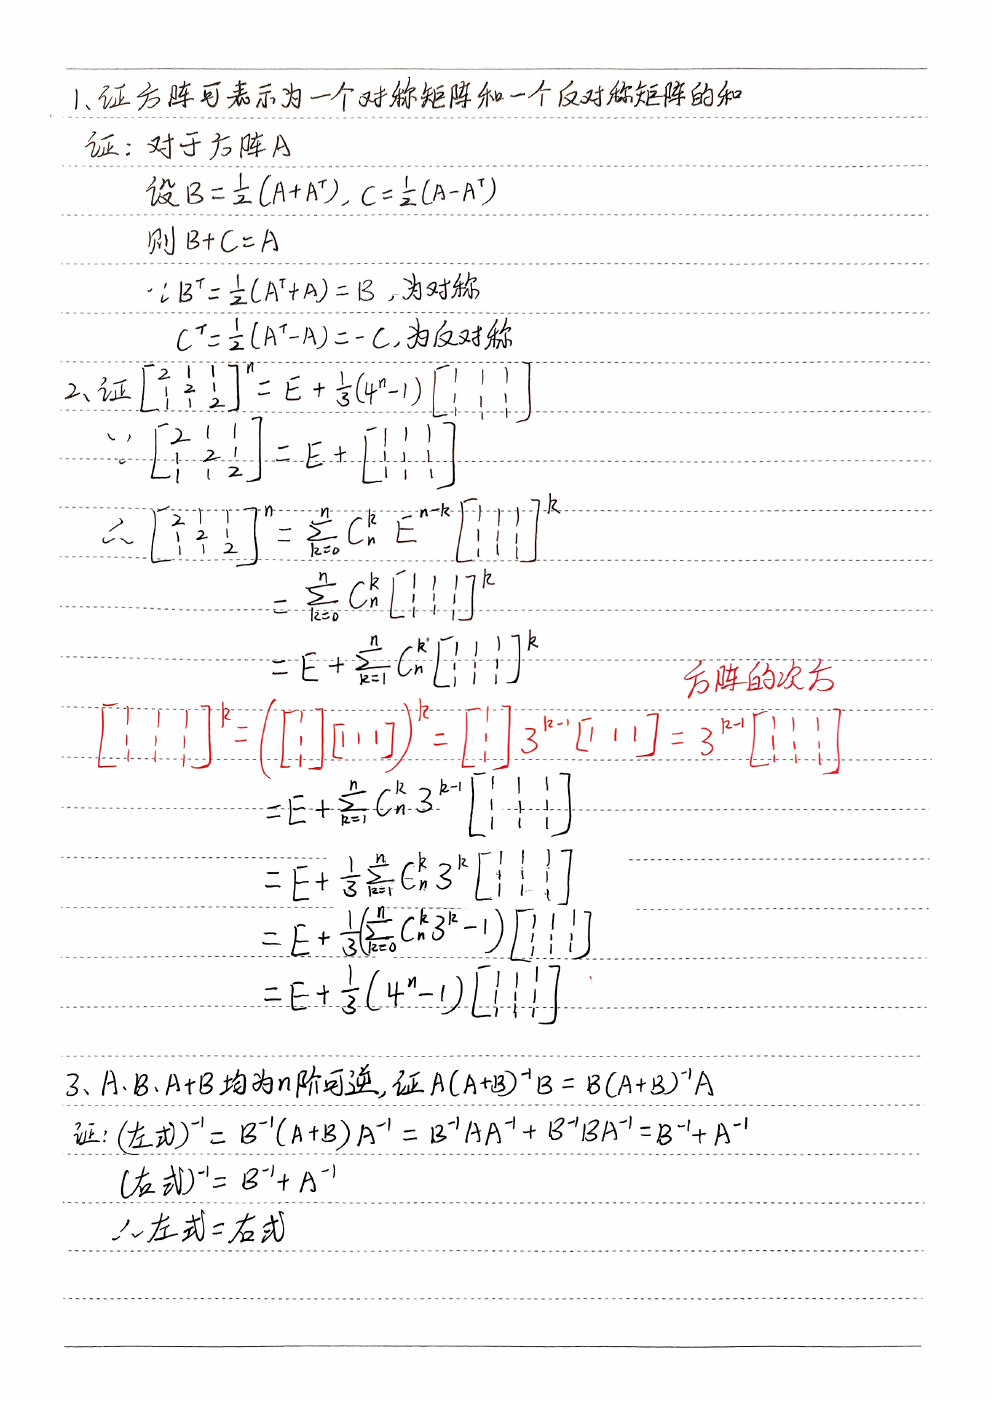 1、证方阵可表示为一个对称矩阵和一个反对称矩阵的和
证：对于方阵A
设B=½(A+Aᵀ), C=½(A-Aᵀ)
则B+C=A
∵Bᵀ=½(Aᵀ+A)=B，为对称
Cᵀ=½(Aᵀ-A)=-C，为反对称
2、证[2 1 1; 1 2 1; 1 1 2]ⁿ=E+⅓(4ⁿ-1)[1 1 1; 1 1 1; 1 1 1]
∵[2 1 1; 1 2 1; 1 1 2]=E+[1 1 1; 1 1 1; 1 1 1]
∴[2 1 1; 1 2 1; 1 1 2]ⁿ=∑_{k=0}^{n} C_n^k E^{n-k}[1 1 1; 1 1 1; 1 1 1]^k
=∑_{k=0}^{n} C_n^k [1 1 1; 1 1 1; 1 1 1]^k
=E+∑_{k=1}^{n} C_n^k [1 1 1; 1 1 1; 1 1 1]^k
方阵的次方
[1 1 1; 1 1 1; 1 1 1]^k=([1; 1; 1][1 1 1])^k=[1; 1; 1]3^{k-1}[1 1 1]=3^{k-1}[1 1 1; 1 1 1; 1 1 1]
=E+∑_{k=1}^{n} C_n^k 3^{k-1}[1 1 1; 1 1 1; 1 1 1]
=E+⅓∑_{k=1}^{n} C_n^k 3^k[1 1 1; 1 1 1; 1 1 1]
=E+⅓(∑_{k=0}^{n} C_n^k 3^k-1)[1 1 1; 1 1 1; 1 1 1]
=E+⅓(4ⁿ-1)[1 1 1; 1 1 1; 1 1 1]
3、A、B、A+B均为n阶可逆，证A(A+B)⁻¹B=B(A+B)⁻¹A
证：(左式)⁻¹=B⁻¹(A+B)A⁻¹=B⁻¹AA⁻¹+B⁻¹BA⁻¹=B⁻¹+A⁻¹
(右式)⁻¹=B⁻¹+A⁻¹
∴左式=右式